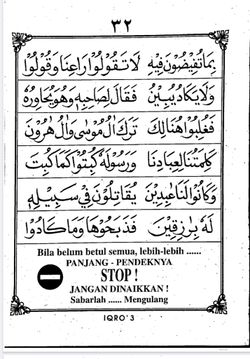 ٣٢
بِمَا تُفِيْضُوْنَ فِيْهِ لَا تَقُوْلُوْا رَاعِنَا وَقُوْلُوْا
وَلَا يَكَادُ يُبِيْنُ فَقَالَ لِصَاحِبِهِ وَهُوَ يُحَاوِرُهُ
فَغُلِبُوْا هُنَالِكَ تَرَكَ اٰلُ مُوْسٰى وَاٰلُ هٰرُوْنَ
كَلِمَتُنَا لِعِبَادِنَا وَرَسُوْلَهُ كُبِتُوْا كَمَا كُبِتَ
وَكَانُوْا لَنَا عٰبِدِيْنَ يُقَاتِلُوْنَ فِيْ سَبِيْلِهِ
لَهُ بِرٰزِقِيْنَ فَذَبَحُوْهَا وَمَا كَادُوْا
Bila belum betul semua, lebih-lebih ......
PANJANG - PENDEKNYA
STOP !
JANGAN DINAIKKAN !
Sabarlah ...... Mengulang
IQRO' 3